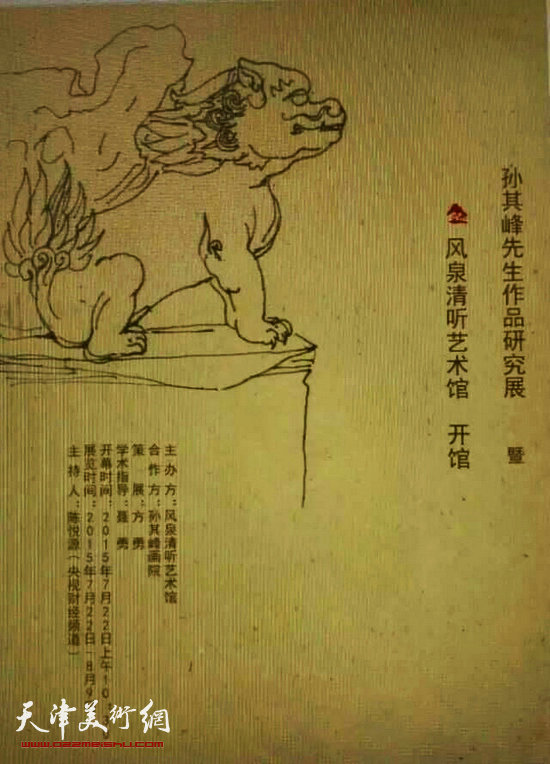 孙其峰先生作品研究展 暨
风泉清听艺术馆 开馆
主办方:风泉清听艺术馆
合作方:孙其峰画院
策 展:方 勇
学术指导:聂 勇
开幕时间:2015年7月22日上午10:
展览时间:2015年7月22日-8月9
主持人:陈悦源(央视财经频道)
天津美術網
www.022meishu.com